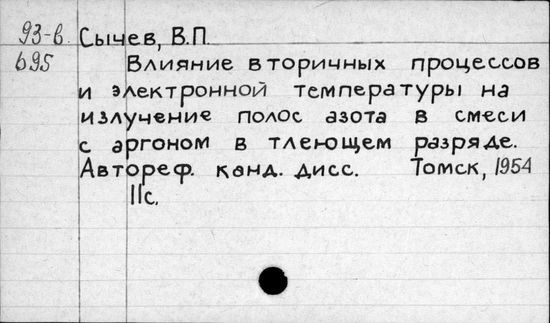 93-в Сычев, В.П.
695 Влияние вторичных процессов
и электронной температуры на
излучение полос азота в смеси
с аргоном в тлеющем разряде.
Автореф. канд. дисс. Томск, 1954
11с.